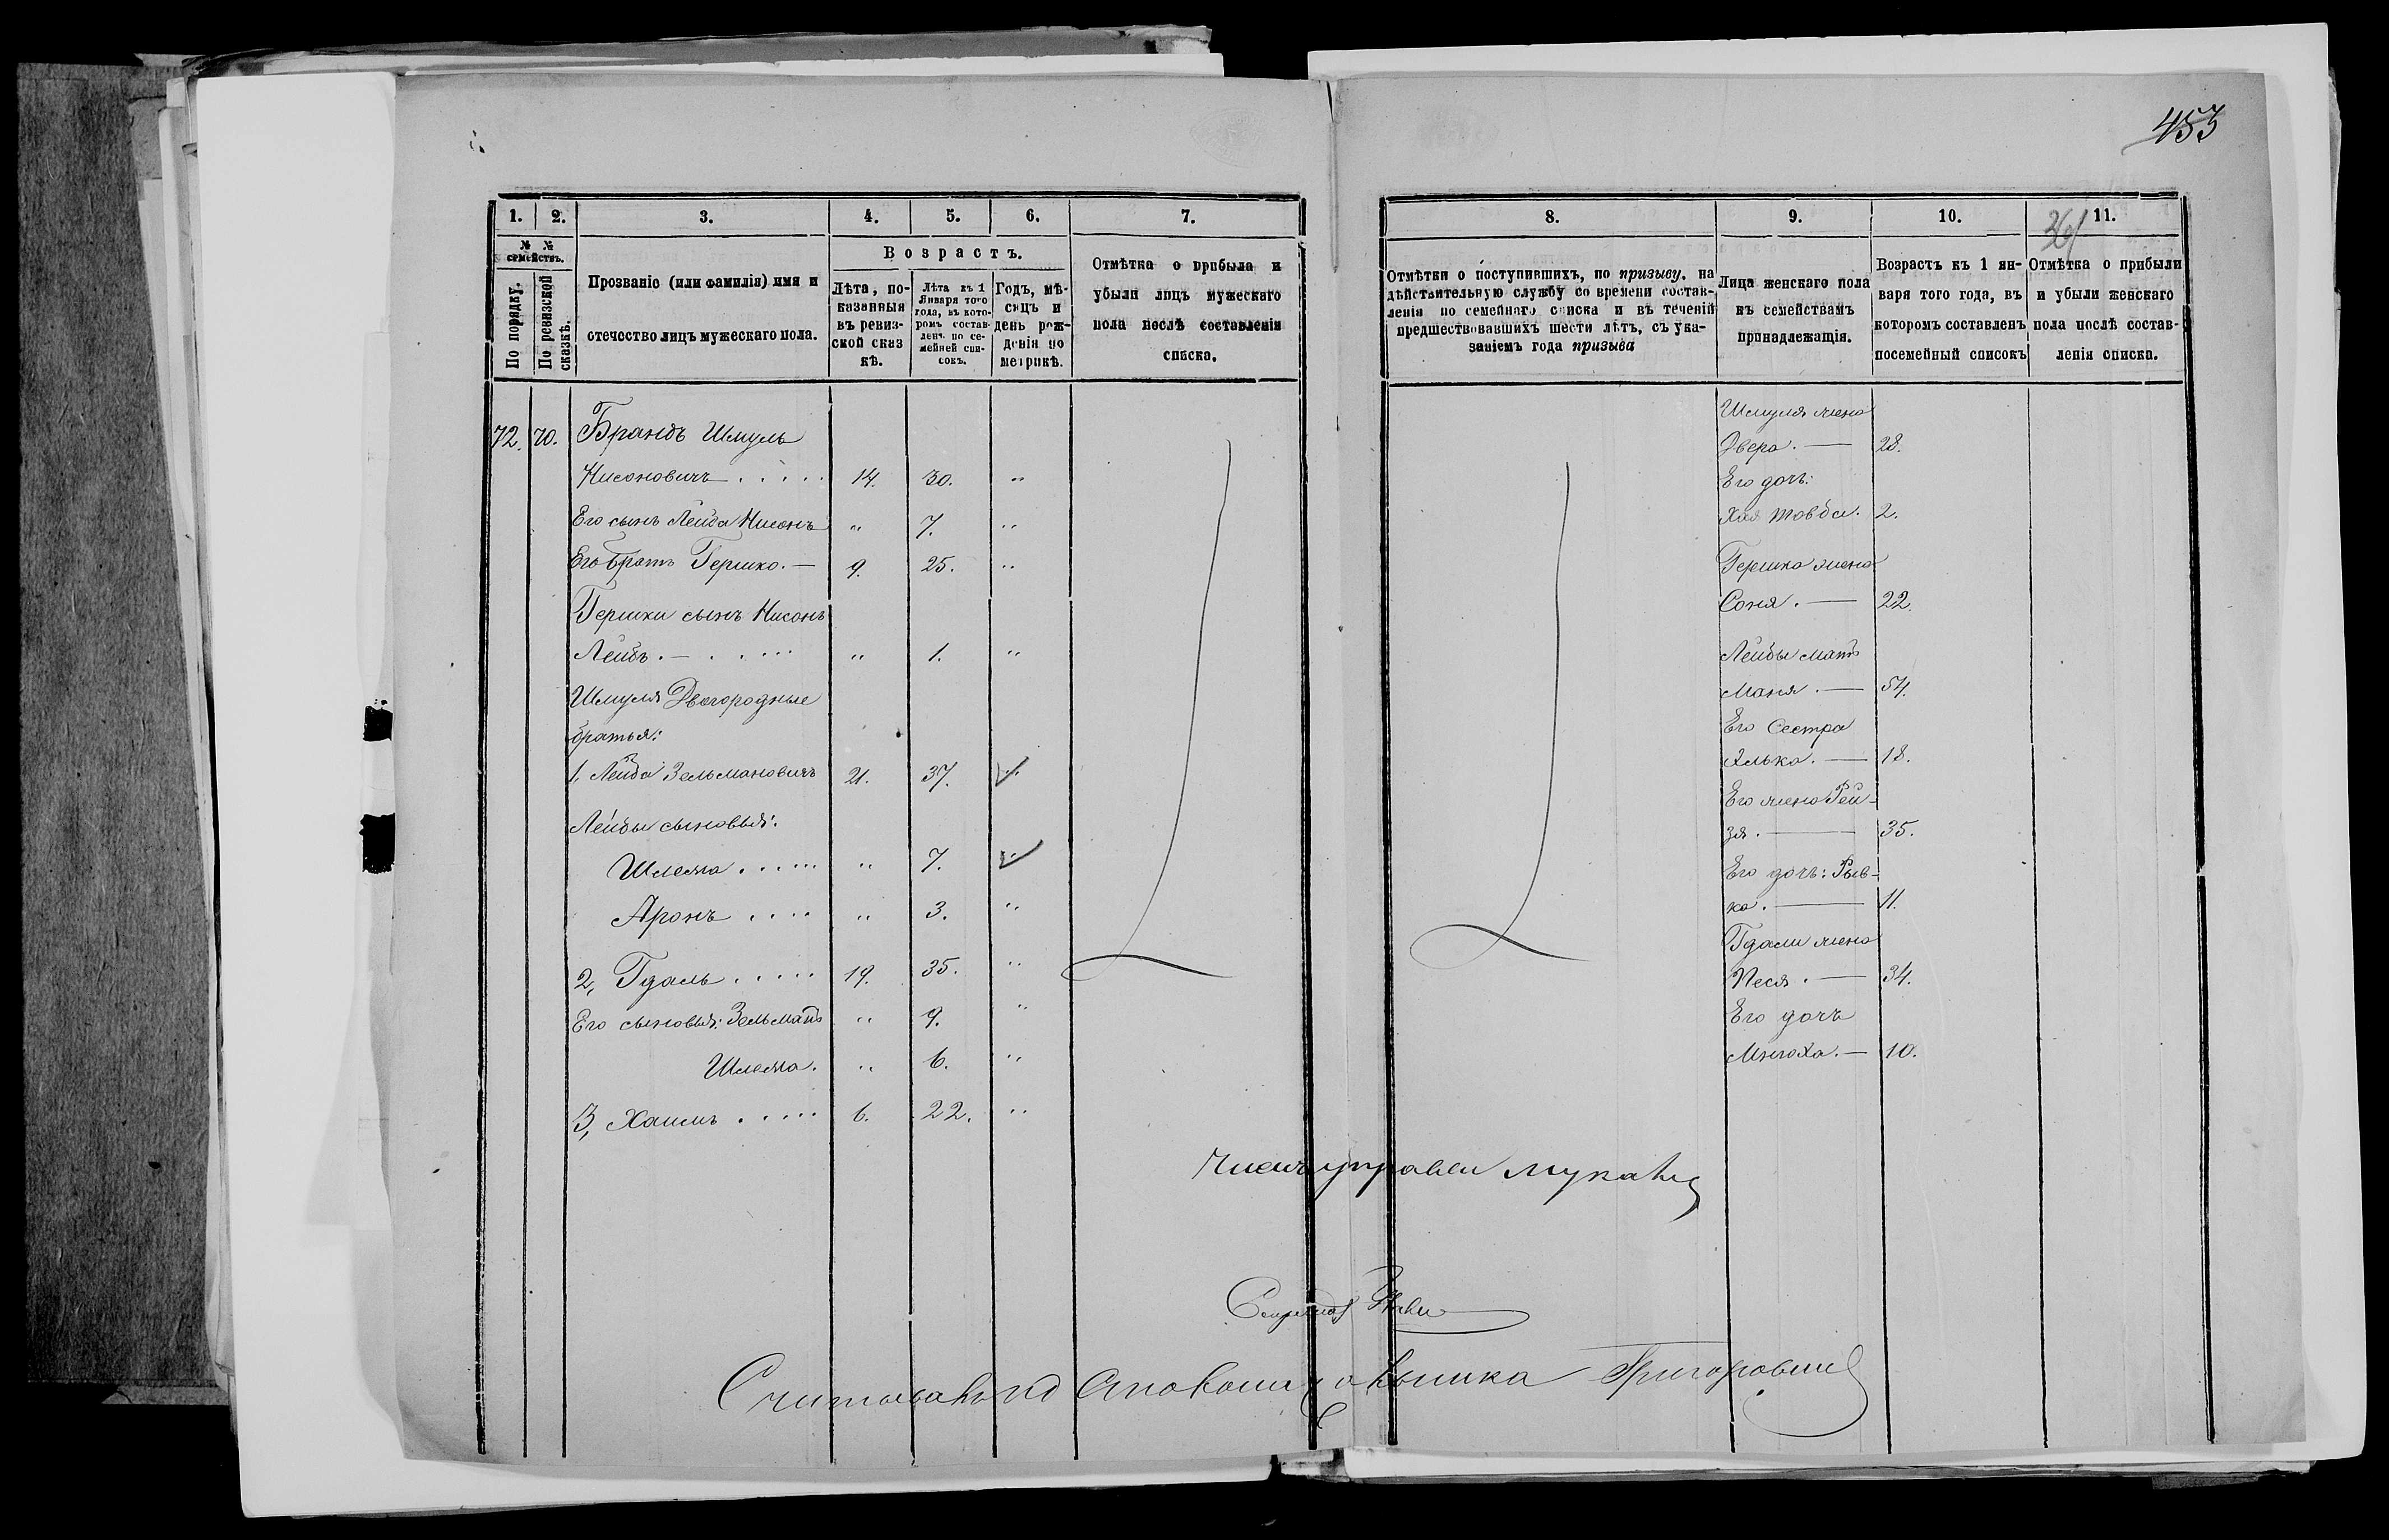 453
361
1. 2. 3. 4. 5. 6. 7.
№ № семействъ.
По порядку.
По ревизской сказкѣ.
Прозваніе (или фамилія) имя и
отечество лицъ мужескаго пола.
Возрастъ.
Лѣта, по-
казанныя
въ ревиз-
ской сказ
кѣ.
Лѣта къ 1
Января того
года, въ кото-
ромъ состав-
ленъ по се-
мейней спи-
сокъ.
Годъ, мѣ-
сяцъ и
день рож-
денія по
метрикѣ.
Отмѣтка о прибыла и
убыли лицъ мужескаго
пола послѣ составленія
списка.
72. 70. Брандъ Шмуль
Нисоновичъ . . . . . 14. 30. "
Его сынъ Лейба Нисонъ " 7. "
Его братъ Гершко. — 9. 25. "
Гершки сынъ Нисонъ
Лейбъ. — . . . . . " 1. "
Шмуля Двоюродные
братья:
1. Лейба Зельмановичъ 21. 37. "
Лейбы сыновья:
Шлема . . . . . " 7. "
Аронъ . . . . " 3. "
2, Гдаль . . . . . 19. 35. "
Его сыновья: Зельманъ " 9. "
Шлема. " 6. "
3, Хаимъ . . . . . 6. 22. "
8. 9. 10. 11.
Отмѣтки о поступившихъ, по призыву, на
дѣйствительную службу со времени состав-
ленія по семейнаго списка и въ теченій
предшествовавшихъ шести лѣтъ, съ ука-
заніемъ года призыва
Лица женскаго пола
къ семействамъ
принадлежащія.
Возрасть къ 1 ян-
варя того года, въ
котором составленъ
посемейный списокъ
Отмѣтка о прибыли
и убыли женскаго
пола послѣ состав-
ленія списка.
Шмуля жена
Двера. — 28.
Его дочь:
Хая Товба. 2.
Гершка жена
Соня. — 22.
Лейбы мать
Маня. — 54.
Его Сестра
Элька. — 18.
Его жена Рей-
зя. — 35.
Его дочь: Рыв-
ка. — 11.
Гдали жена
Песя. — 34.
Его дочь
Мнюха. — 10.
Членъ управы
Секретарь
Считовалъ
Григоровичъ